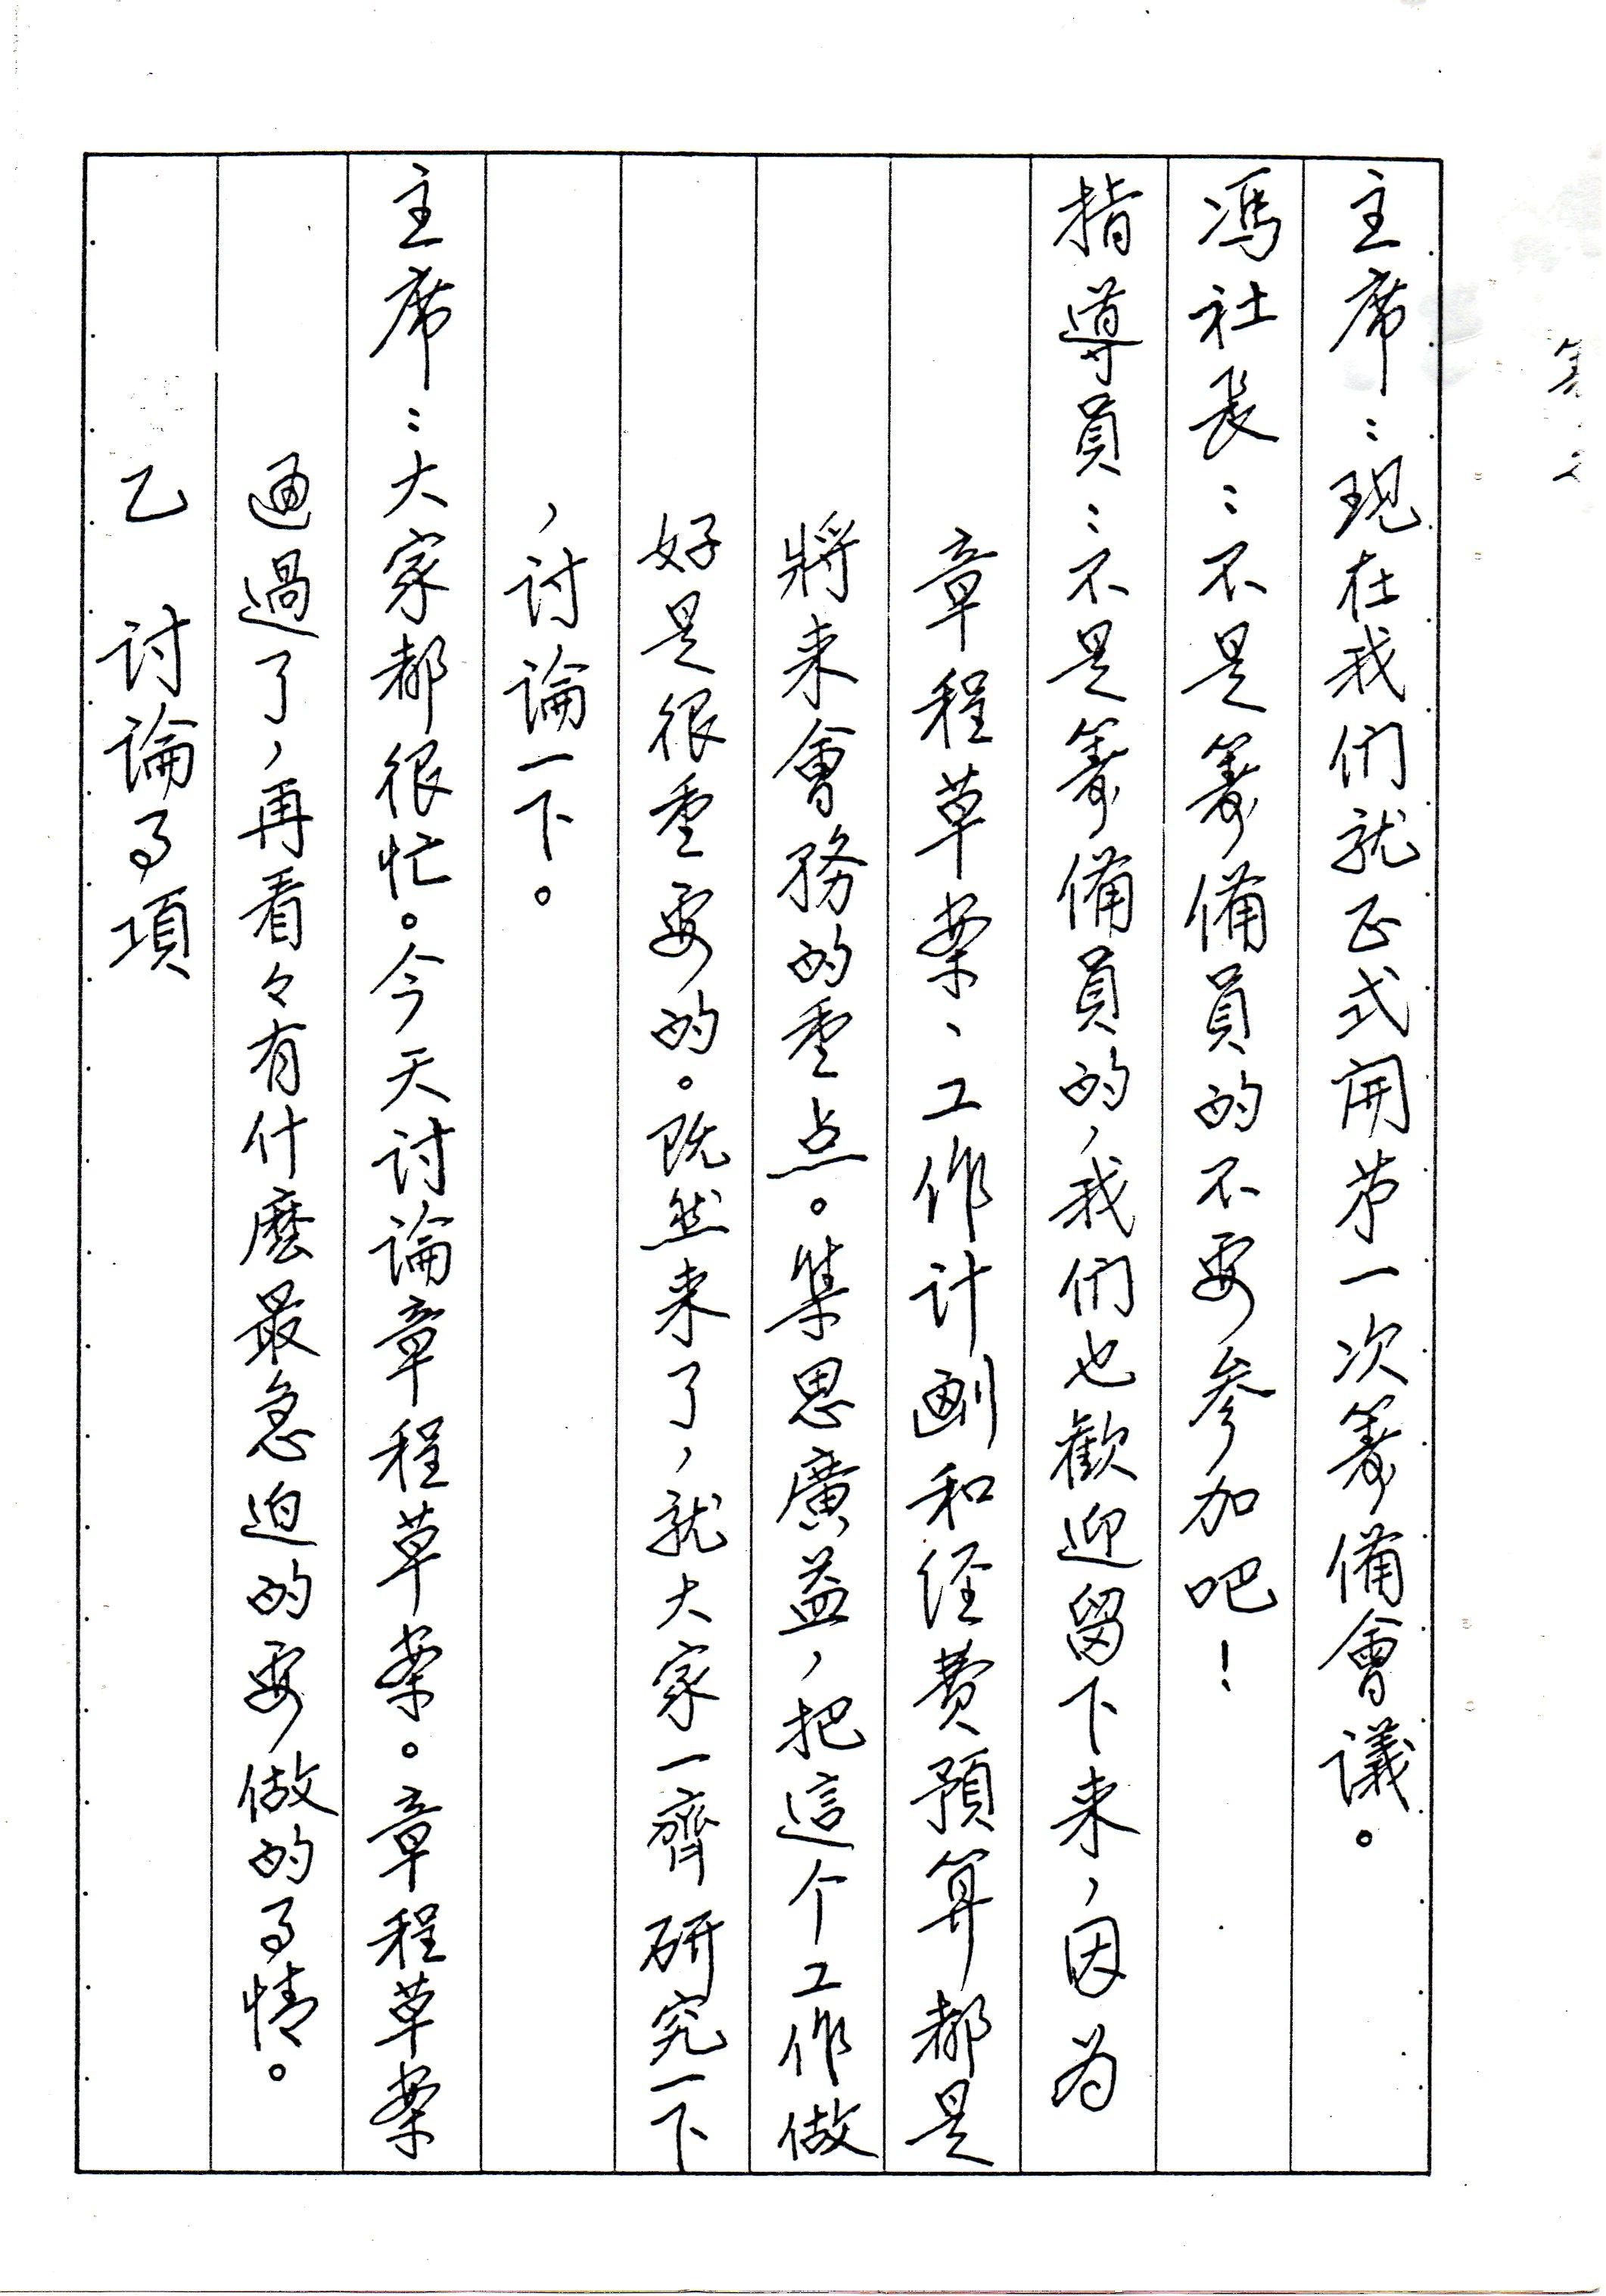 主席：現在我们就正式開第一次筹備會議。
馮社長：不是筹備員的不要参加吧！
指導員：不是筹備員的，我们也歡迎留下来，因为
章程草案、工作计劃和经費預算都是
將来會務的重点。集思廣益，把這个工作做
好是很重要的。既然来了，就大家一齊研究一下
，讨論一下。
主席：大家都很忙。今天讨論章程草案。章程草案
通過了，再看々有什麼最急迫的要做的事情。
乙 讨論事項